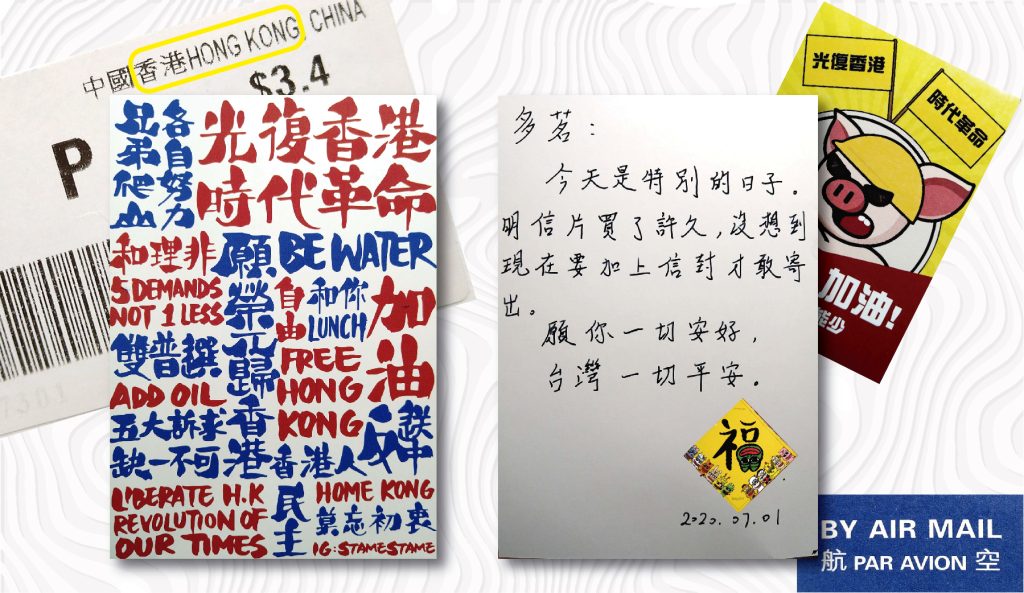 中國香港HONG KONG, CHINA
$3.4
P
兄弟爬山
各自努力
光復香港
時代革命
和理非
5 DEMANDS
NOT 1 LESS
雙普選
ADD OIL
五大訴求
缺一不可
願榮光歸香港
BE WATER
自由
和你
LUNCH
加油
FREE
HONG
KONG
反送中
香港人
LIBERATE H.K
REVOLUTION OF
OUR TIMES
民主
HOME KONG
莫忘初衷
IG:STAMESTAME
多茗：
今天是特別的日子。
明信片買了許久,沒想到
現在要加上信封才敢寄
出。
願你一切安好,
台灣一切平安。
福
2020.07.01
光復香港
時代革命
加油!
能少
BY AIR MAIL
航 PAR AVION 空